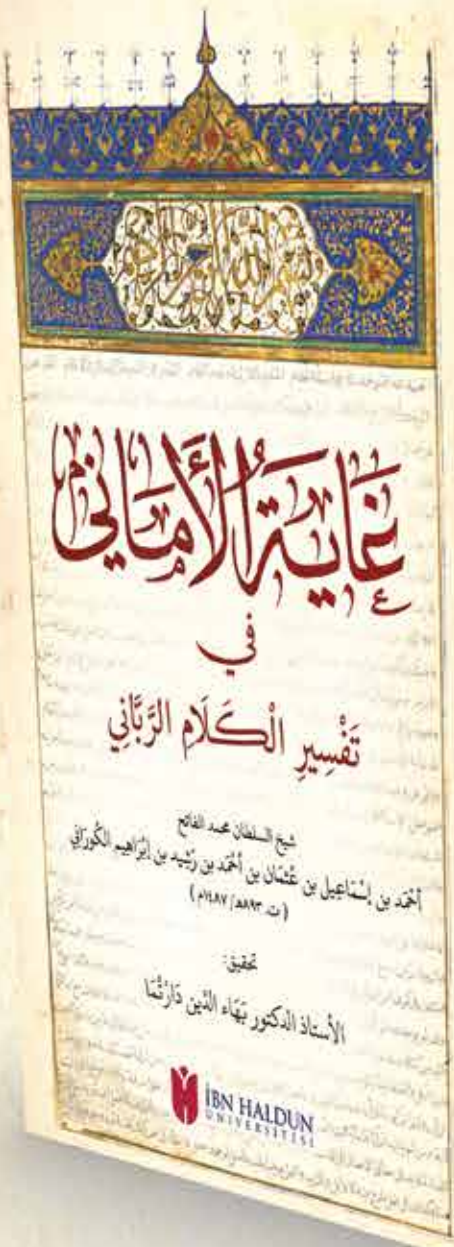 بسم الله الرحمن الرحيم
غَايَةُ الْأَمَانِي
في
تَفْسِيرِ الْكَلَامِ الرَّبَّانِي
شيخ السلطان محمد الفاتح
أَحْمَد بن إِسْمَاعِيل بن عُثْمَان بن أَحْمَد بن رَشِيد بن إِبْرَاهِيم الكُورَانِي
(ت. ٨٩٣هـ/١٤٨٧م)
تحقيق:
الأستاذ الدكتور بَهَاء الدِّين دَارْتْمَا
IBN HALDUN
ÜNİVERSİTESİ